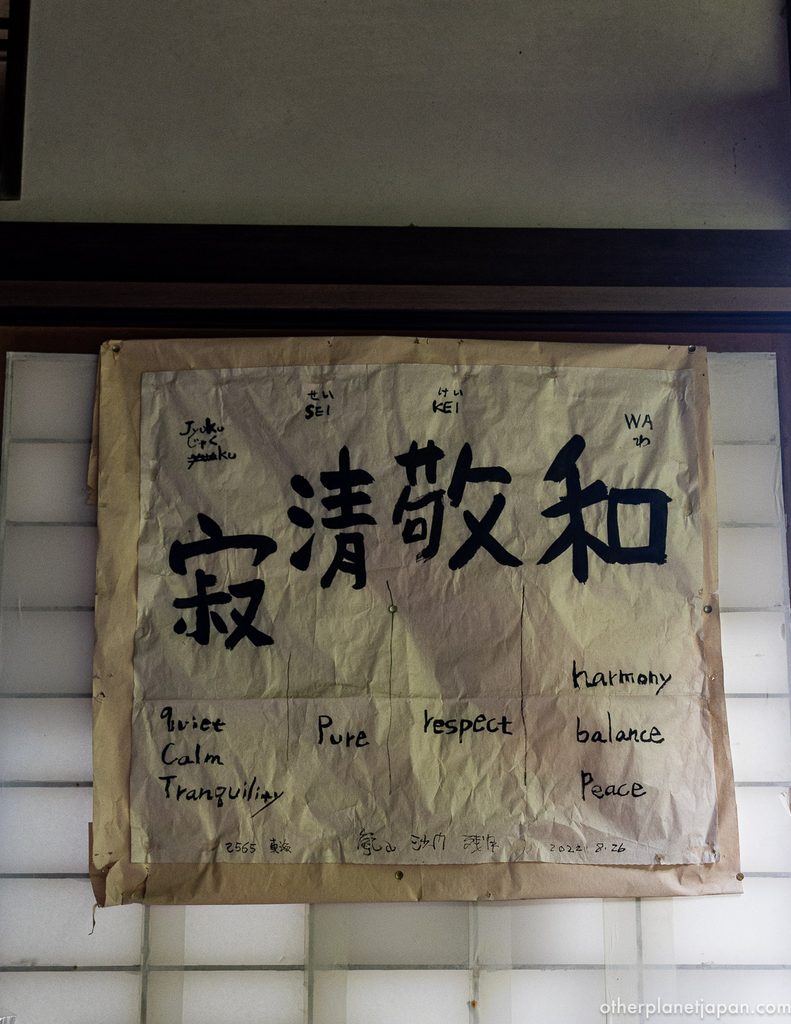 せい
SEI
けい
KEI
WA
わ
Jyuku
じゃく
寂清敬和
harmony
quiet
Pure
respect
balance
Calm
Tranquility
Peace
2565
嵐山
2022 8.26
otherplanetjapan.com